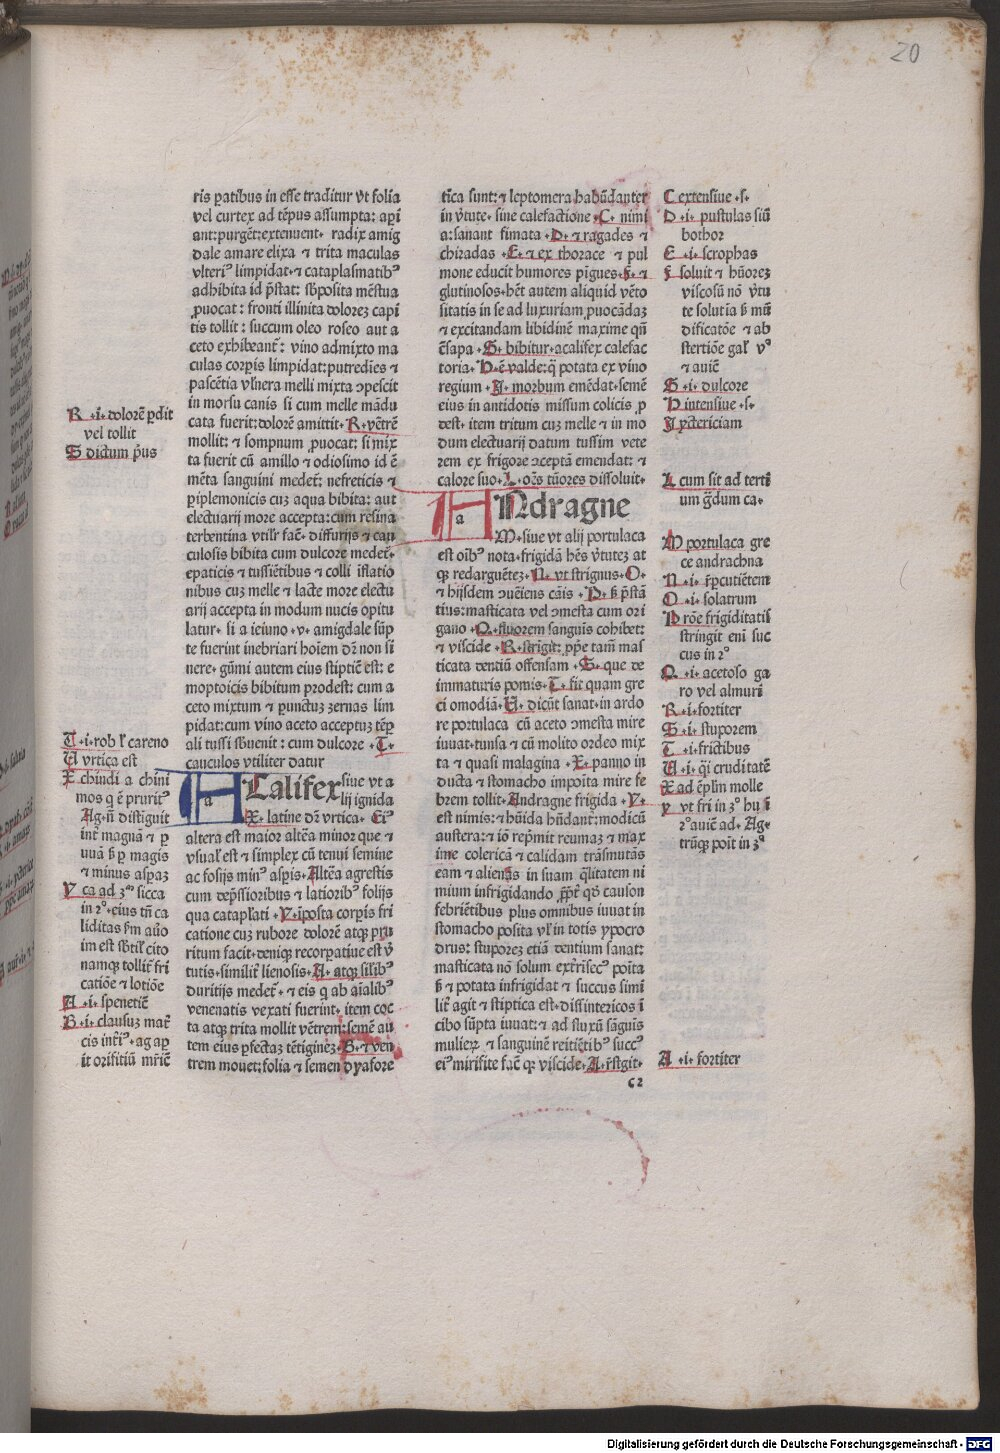 20
ris ꝑatibus in esse traditur vt folia
vel curtex ad tēpus assumpta: aꝑi
ant: purgēt: extenuent· radix amig
dale amare elixa ⁊ trita maculas
vlteriꝰ limpidat· ⁊ cataplasmatibꝰ
adhibita id p̄stat: sb̄posita mēstua
ꝓuocat: fronti illinita dolorez capi
tis tollit: succum oleo roseo aut a
ceto exhibeant̄: vino admixto ma
culas corꝑis limpidat: putredies ⁊
pascētia vlnera melli mixta ↄpescit
in morsu canis si cum melle mādu
cata fuerit: dolorē amittit· R· vētrē
mollit: ⁊ sompnum ꝓuocat: si mix
ta fuerit cū amillo ⁊ odiosimo id ē
mēta sanguini medet̄: nefreticis ⁊
ꝑiplemonicis cuz aqua bibita: aut
electuarij more accepta: cum resina
terbentina vtilr̄ fac̄t· dissurijs ⁊ cau
culosis bibita cum dulcore medet̄·
epaticis ⁊ tussiētibus ⁊ colli īflatio
nibus cuz melle ⁊ lacte more electu
arij accepta in modum nucis opitu
latur· si a ieiuno ·v· amigdale sūp
te fuerint inebriari hoiem dn̄ non si
nere· gūmi autem eius stiptic̄ est: e
moptoicis bibitum prodest: cum a
ceto mixtum ⁊ punctuz zernas lim
pidat: cum vino aceto acceptuz tēꝑ
ali tussi sb̄uenit: cum dulcore ·T·
cauculos vtiliter datur
R ·i· dolorē ꝑdit
vel tollit
S dictum p̄us
T ·i· rob l̄ careno
V vrtica est
X chindi a chini
mos q̄ ē pruritꝰ
Ag·n̄ distiguit
int̄ magnā ⁊ ꝑ
uuā s̄ ꝑ magis
⁊ minus asꝑaz
Y ca ad 3ᵐ sicca
in 2°·eius tn̄ ca
liditas s̄m auō
im est sb̄til̄ cito
namqꝫ tollit̄ fri
catiōe ⁊ lotiōe
A ·i· spenetic̄
B ·i· clausuz mat̄
cis int̄iꝰ· ag aꝑ
it orifitiū mr̄ic̄
a
HCalifex siue vt a
lij ignida
X· latine dn̄ vrtica· Eiꝰ
altera est maior altēa minor que ⁊
vsual̄ est ⁊ simplex cū tenui semine
ac folijs minꝰ asꝑis· Altēa agrestis
cum deprssioribus ⁊ latioribꝰ folijs
qua cataplati ·Y· iposta corꝑis fri
catione cuz rubore dolorē atqꝫ pru
ritum facit· deniqꝫ recorpatiue est v̄
tutis· similit̄ lienosis· A· atqꝫ silibꝰ
duritijs medet̄· ⁊ eis q̄ ab aīalibꝰ
venenatis vexati fuerint· item coc
ta atqꝫ trita mollit vētrem: semē au
tem eius ꝑfectaz tētiginez· B· ⁊ ven
trem mouet: folia ⁊ semen dyafore
tic̄a sunt: ⁊ leptomera habūdanter
in v̄tute· sine calefactione ·C· nimi
a: sanant fimata ·D· ⁊ ragades ⁊
chiradas ·E· ⁊ ex thorace ⁊ pul
mone educit humores pīgues· F· ⁊
glutinosos· hēt autem aliquid vēto
sitatis in se ad luxuriam ꝓuocādaz
⁊ excitandam libidinē maxime qn̄
c̄sapa ·G· bibitur· acalifex calefac
toria· H· ē valde: q̄ potata ex vino
regium ·I· morbum emēdat· semē
eius in antidotis missum colicis ꝓ
dest· item tritum cuz melle ⁊ in mo
dum electuarij datum tussim vete
rem ex frigore ↄceptā emendat: ⁊
calore suo· L· oēs tūores dissoluit·
a
HNdragne
M· siue vt alij portulaca
est oībꝰ nota· frigidā hēs v̄tutez at
qꝫ redarguētez· N· vt strignus ·O·
⁊ hijsdem ↄuēiens cāis ·P· s̄ p̄stā
tius: masticata vel ↄmesta cum ori
gano ·Q· fluorem sanguīs cohibet:
⁊ viscide ·R· strīgit: ꝓpe tam̄ mas
ticata dentiū offensam ·S· que de
immaturis pomis ·T· fit quam gre
ci omodiā· V· dicūt sanat· in ardo
re portulaca cū aceto ↄmesta mire
iuuat· tunsa ⁊ cū molito ordeo mix
ta ⁊ quasi malagina ·X· panno in
ducta ⁊ stomacho impoīta mire fe
brem tollit· Andragne frigida ·Y·
est nimis: ⁊ hūida hūdant̄: modicū
austera: ⁊ iō repr̄mit reumaz ⁊ max
ime colericā ⁊ calidam trāsmutās
eam ⁊ alienās in suam q̄litatem ni
mium infrigidando ꝓpt̄ qō causon
febriētibus plus omnibus iuuat in
stomacho posita vl̄ in totis ypocro
drus: stuporez etiā dentium sanat:
masticata nō solum ext̄rīsecꝰ poīta
s̄ ⁊ potata infrigidat ⁊ succus simi
lit̄ agit ⁊ stiptica est· dissintericos ī
cibo sūpta iuuat: ⁊ ad fluxū sāguis
mulieꝝ ⁊ sanguinē reitiētibꝰ succꝰ
eiꝰ mirifice fac̄t qꝫ viscide· A· rs̄tgit·
c2
C extensiue ·s·
D ·i· pustulas siū
bothor
E ·i· scrophas
F soluit ⁊ hūorez
viscosū nō v̄tu
te solutīa s̄ mū
dificatōe ⁊ ab
stertiōe gal̄ vꝰ
⁊ auic̄
G ·i· dulcore
H intensiue ·s·
I yctericiam
L cum sit ad tertī
um ḡdum ca·
M portulaca gre
ce andrachna
N ·i· r̄ꝑcutiētem
O ·i· solatrum
P rōe frigiditatis
stringit enī suc
cus in 2°
Q ·i· acetoso ga
ro vel almurī
R ·i· fortiter
S ·i· stuporem
T ·i· frictibus
V ·i· q̄i cruditatē
X ad ēplīn molle
y vt fri in 3° hu s̄
2° auic̄ ad· Ag·
trūqꝫ poīt in 3°
A ·i· fortiter
Digitalisierung gefördert durch die Deutsche Forschungsgemeinschaft - DFG